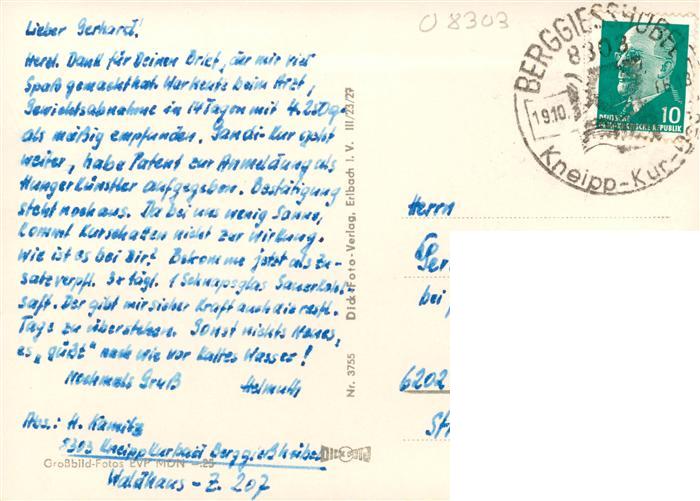 O 8303
BERGGIESSHÜBEL
8303
19.10.
Kneipp-Kur-O
10
DEUTSCHE
DEMOKRATISCHE REPUBLIK
Lieber Gerhard!
Herzl. Dank für Deinen Brief, der mir viel
Spaß gemacht hat. War heute beim Arzt,
Gewichtsabnahme in 14 Tagen mit 4.250 gr
als mäßig empfunden. Gandi-Kur geht
weiter, habe Patent zur Anmeldung als
Hungerkünstler aufgegeben. Bestätigung
steht noch aus. Da bei uns wenig Sonne,
kommt Kurschatten nicht zur Wirkung.
Wie ist es bei Dir? Bekomme jetzt als Zu-
satzverpfl. 3x tägl. 1 Schnapsglas Sauerkohl-
saft. Der gibt mir sicher Kraft auch die restl.
Tage zu überstehen. Sonst nichts Neues,
es "gießt" nach wie vor kaltes Wasser!
Nochmals Gruß Helmuth
Abs.: H. Kamitz
8303 Kneippkurbad Berggießhübel
Waldhaus - Z. 207
Großbild-Fotos EVP MDN -.25
Nr. 3755 Dick-Foto-Verlag, Erlbach i. V. III/23/27
Herrn
Ger
bei
6202
Str